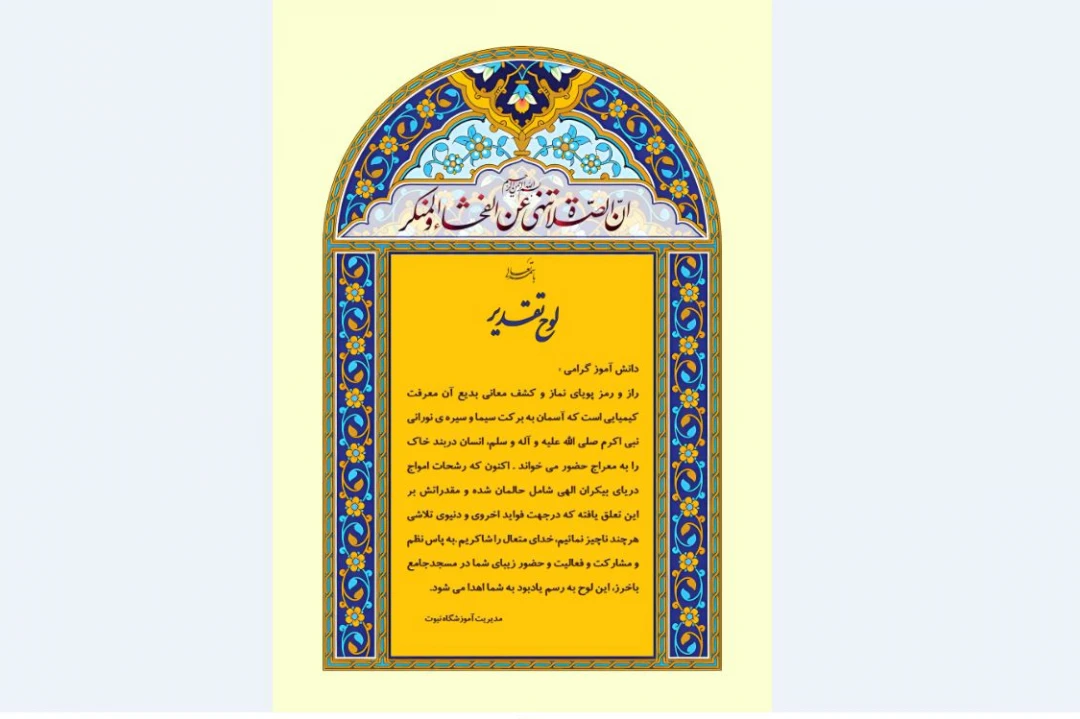 بسم الله الرحمن الرحیم
انّ الصّلاة تنهی عن الفحشاء والمنکر
باسمه تعالی
لوح تقدیر
دانش آموز گرامی ،
راز و رمز پویای نماز و کشف معانی بدیع آن معرفت
کیمیایی است که آسمان به برکت سیما و سیره ی نورانی
نبی اکرم صلی الله علیه و آله و سلم، انسان دربند خاک
را به معراج حضور می خواند . اکنون که رشحات امواج
دریای بیکران الهی شامل حالمان شده و مقدراتش بر
این تعلق یافته که درجهت فواید اخروی و دنیوی تلاشی
هرچند ناچیز نمائیم، خدای متعال را شاکریم .به پاس نظم
و مشارکت و فعالیت و حضور زیبای شما در مسجدجامع
باخرز، این لوح به رسم یادبود به شما اهدا می شود.
مدیریت آموزشگاه نبوت